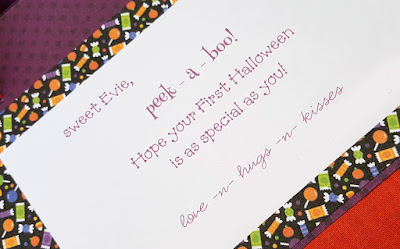 sweet Evie,
peek - a - boo!
Hope your First Halloween
is as special as you!
love -n- hugs -n- kisses